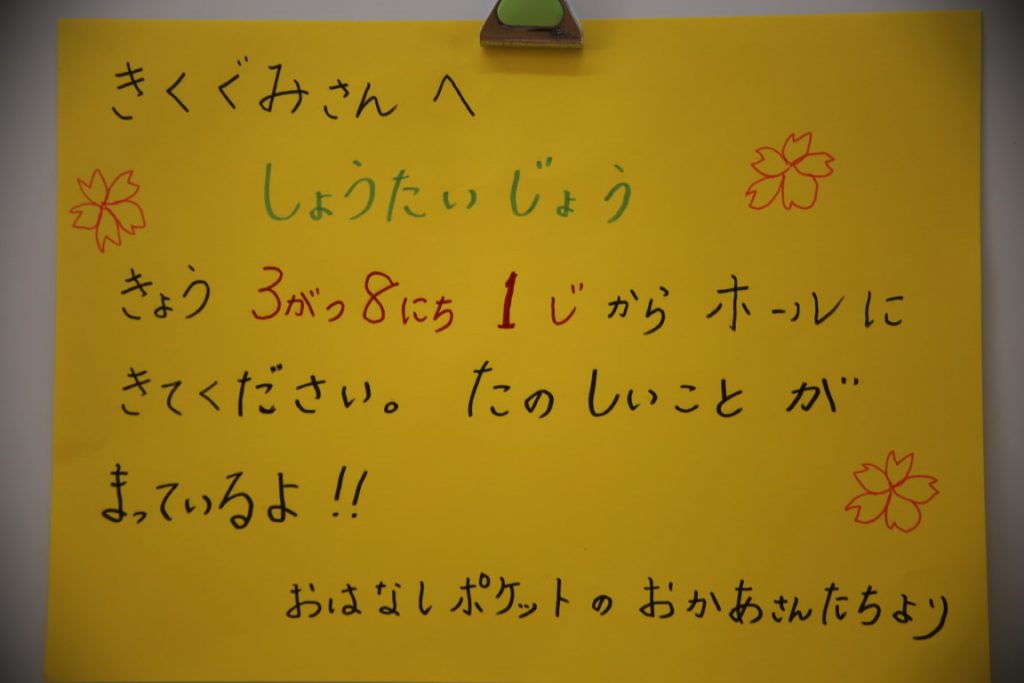 きくぐみさん へ
しょうたいじょう
きょう 3がつ8にち 1じから ホールに
きてください。 たのしいこと が
まっているよ!!
おはなしポケットの おかあさんたちより